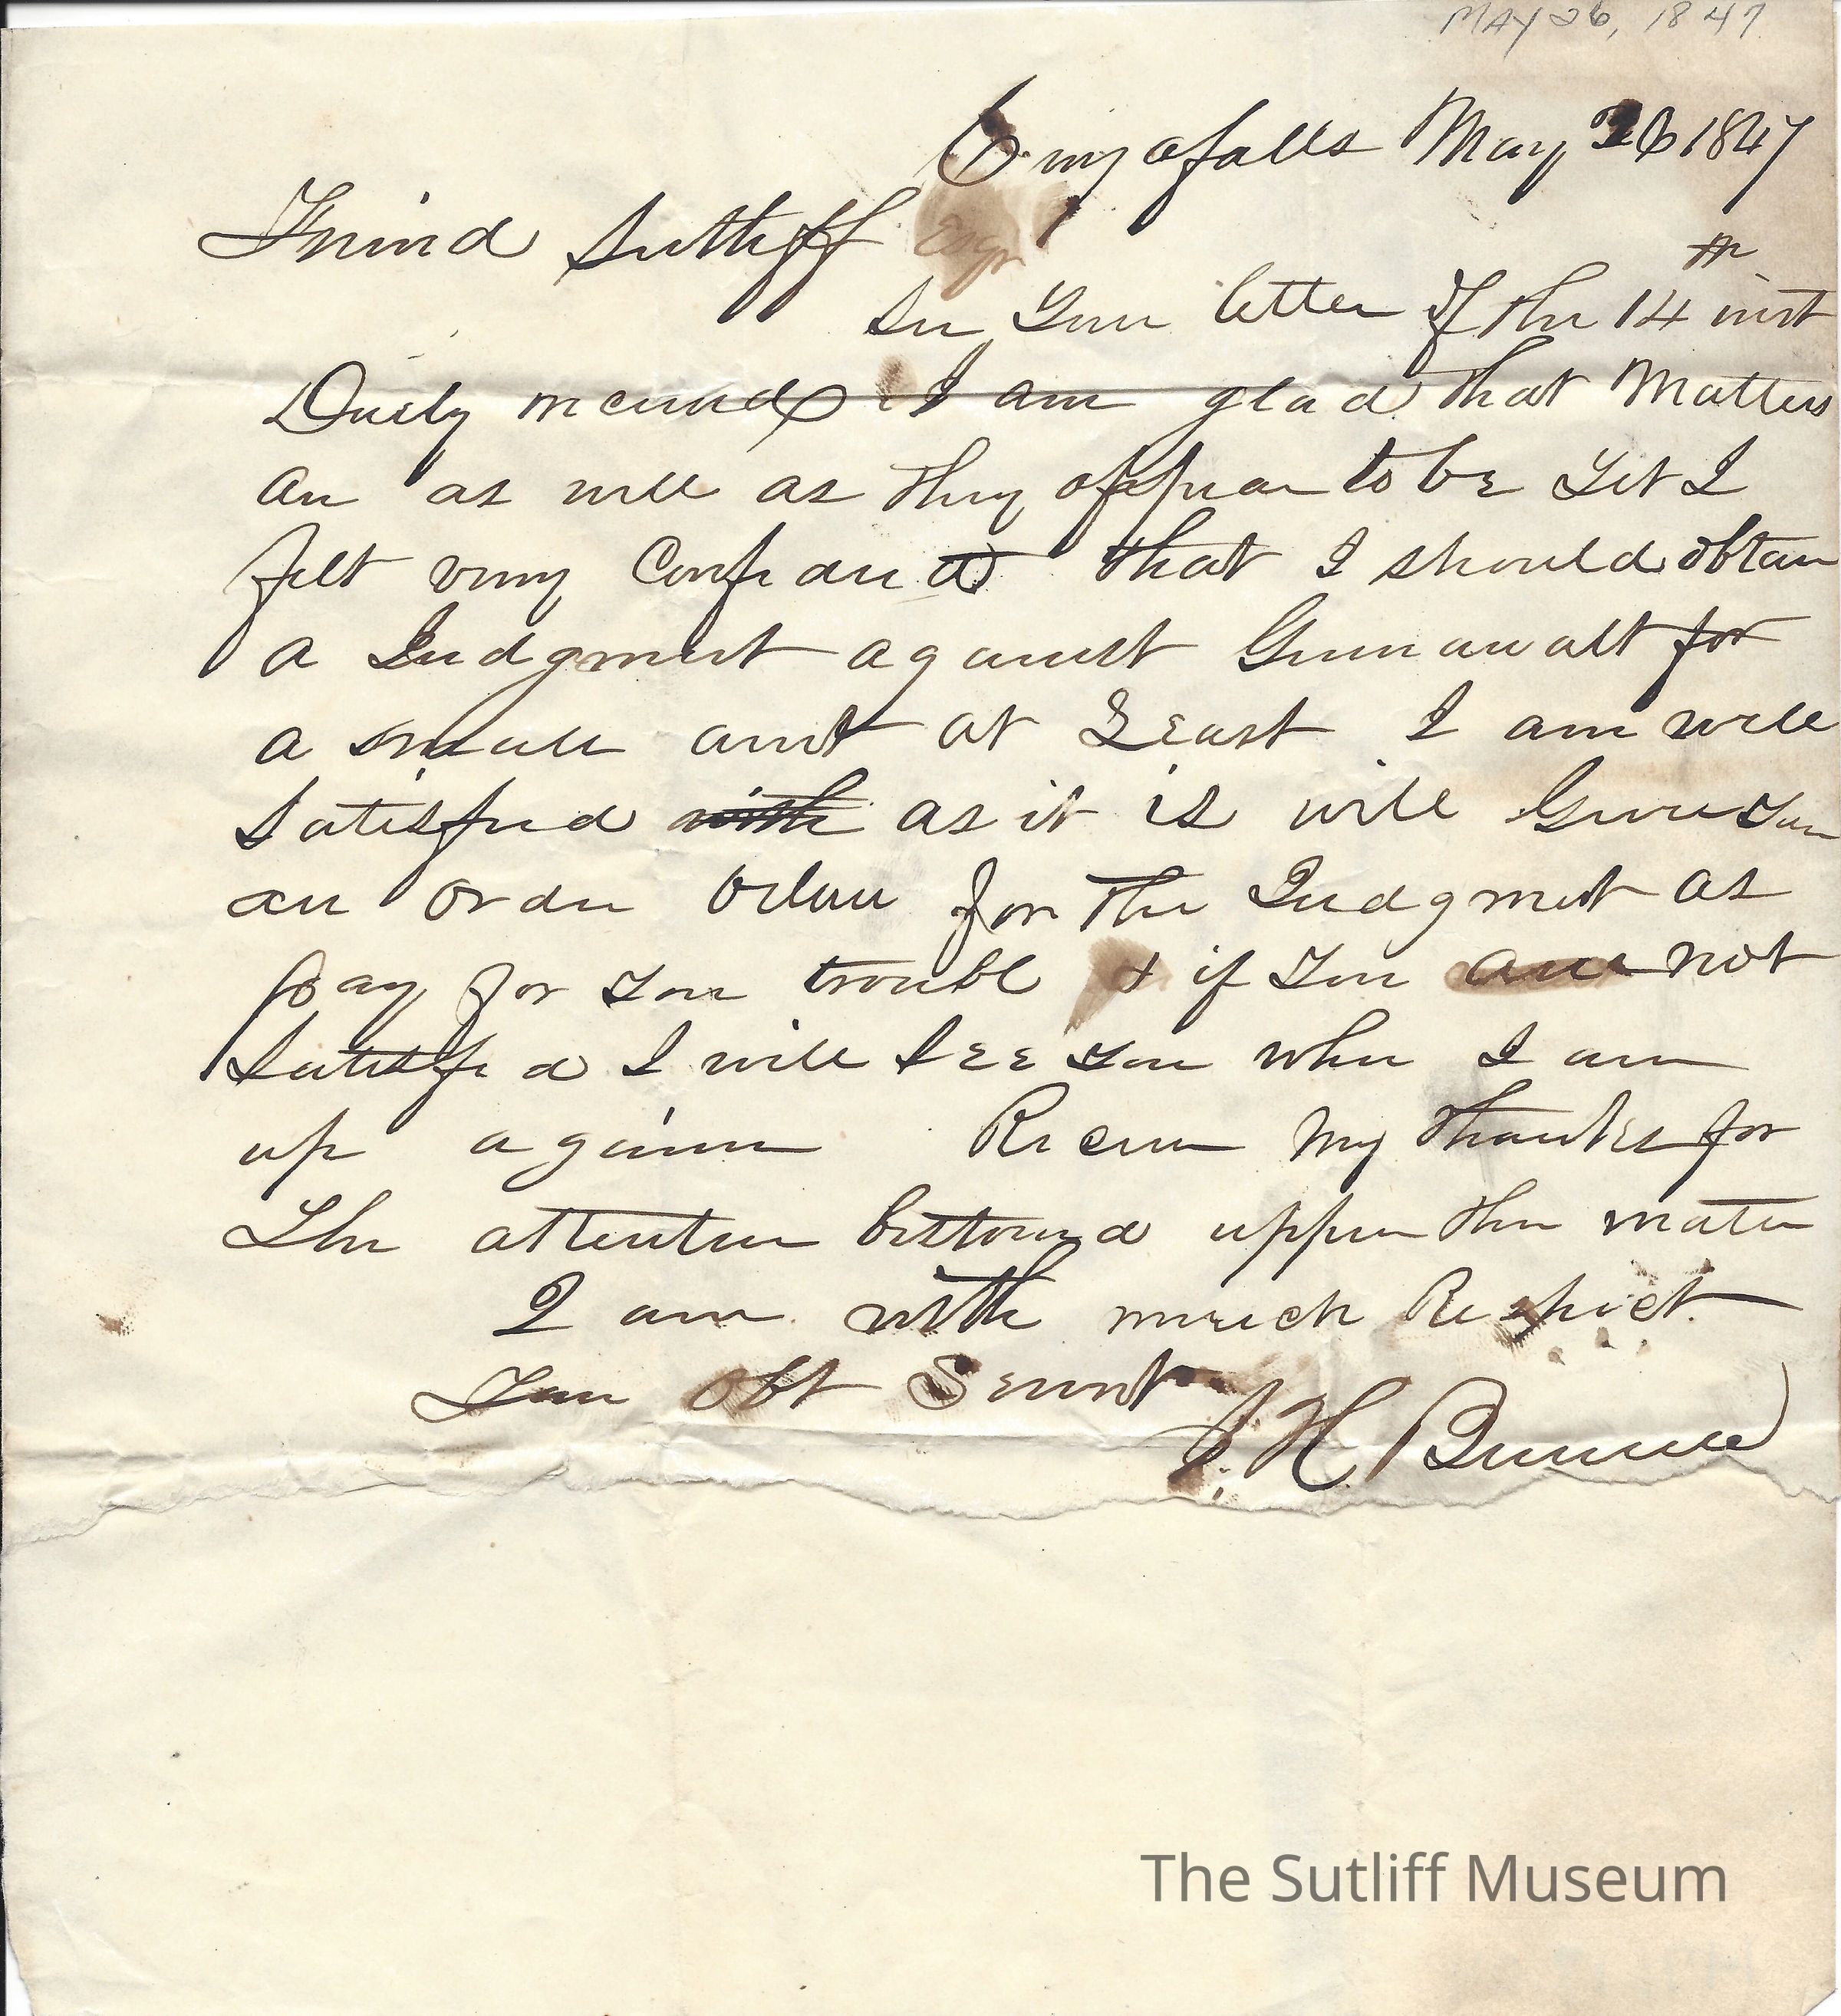 MAY 26, 1847
Cuyafalls May 26 1847
Friend Sutliff Esqr
Sir Your letter of the 14th inst
Duely received I am glad that Matters
are as well as they appear to be Yet I
felt very Confidant that I should obtain
a Judgment against for
a small amt at Least I am well
Satisfied with as it is will Give You
an order below for the Judgment as
pay for your trouble & if You are not
Satisfid I will See You when I am
up again Receive My thanks for
The attention bestowed uppon the mater
I am with much Respect
Your Obt Servnt
H
The Sutliff Museum